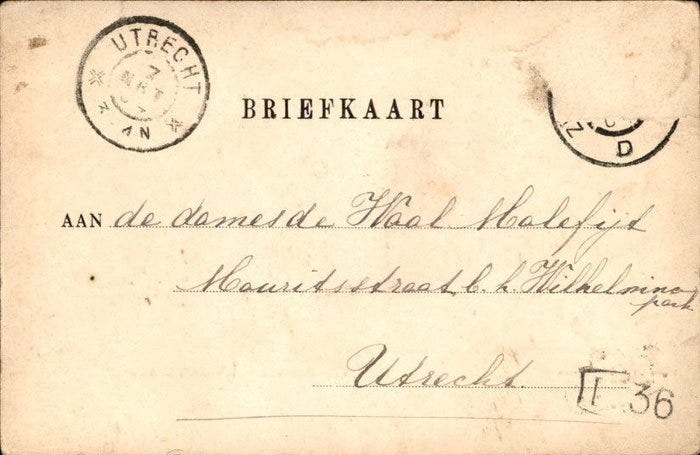 UTRECHT
7
MRT
BRIEFKAART
D
AAN de dames de Waal Malefijt
Mauritsstraat b. h. Wilhelmina
park
Utrecht.
I 36